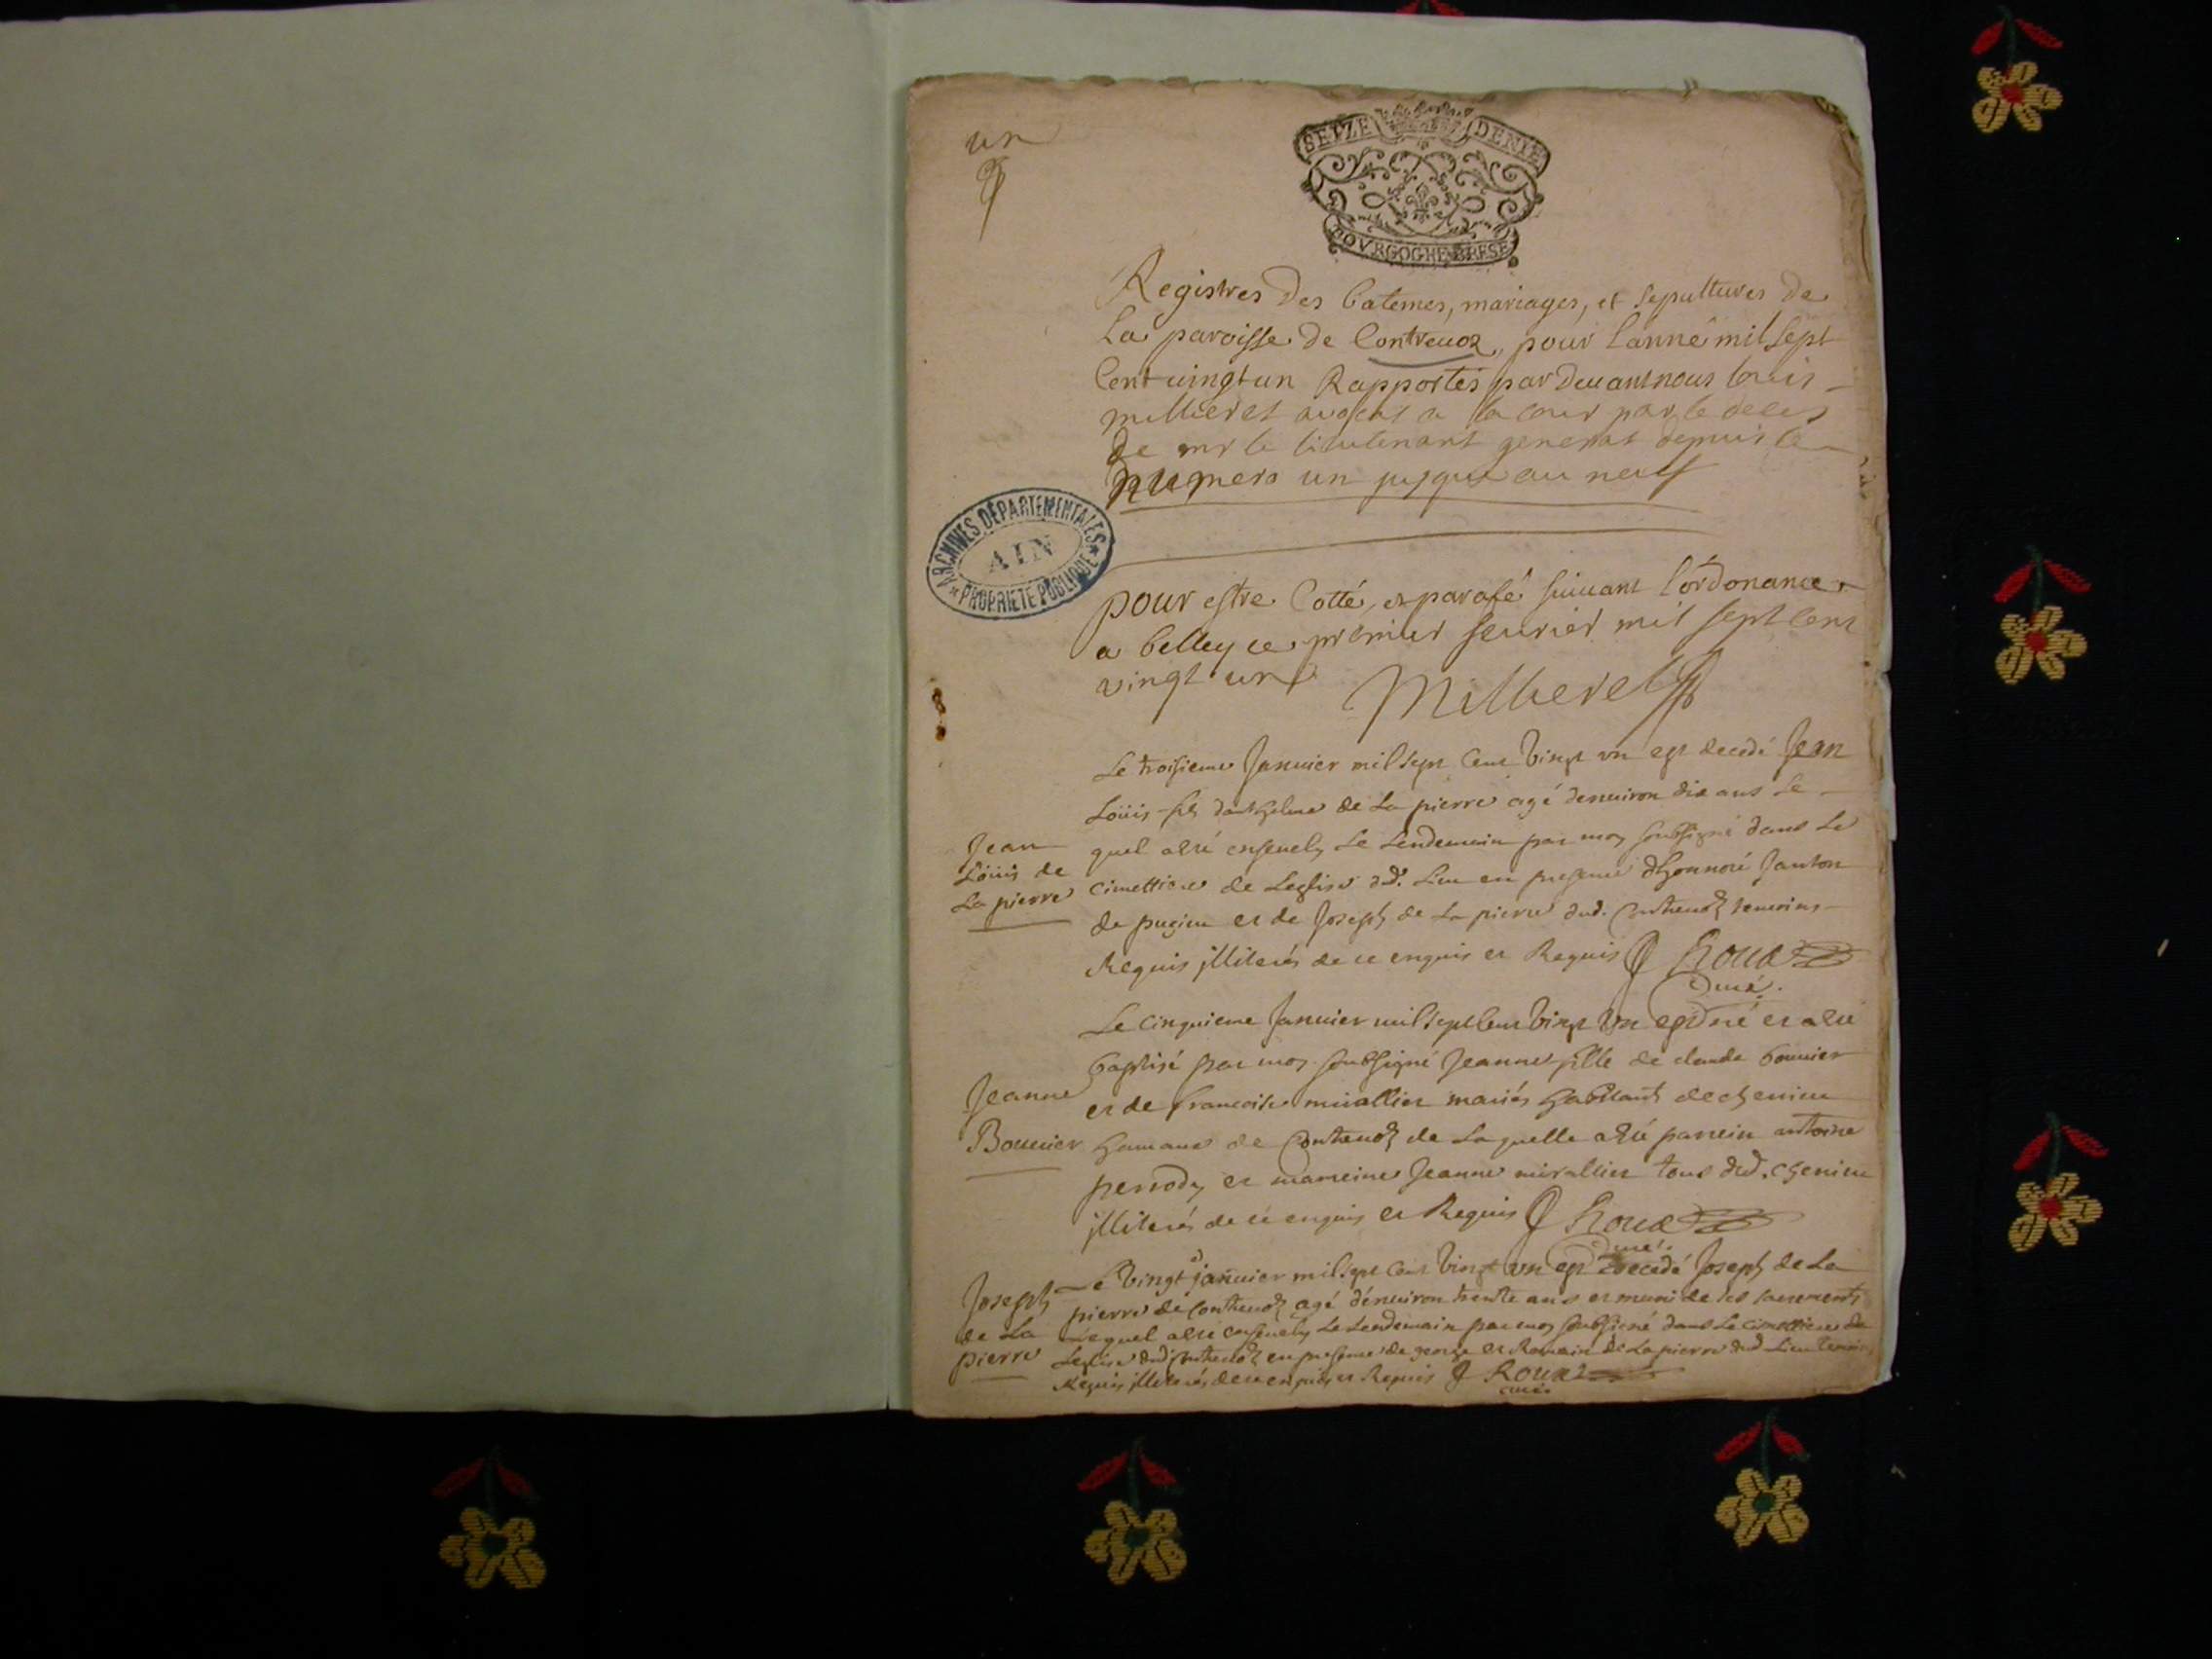 un
SEIZE DENIE
BOVRGOGHE BRESE
Registres des batemes, mariages, et sepultures de
La paroisse de Contreuoz, pour l'anné mil sept
Cent uingt un Rapportés par deuant nous louis
millieret avocat a la cour par le deces
de mr le lieutenant general depuis le
numero un jusque au neuf
ARCHIVES DÉPARTEMENTALES
AIN
PROPRIETE PUBLIQUE
pour estre Cotté, et parafé suiuant l'ordonance
a belley ce premier feurier mil sept cent
vingt un
Millieret
Le troisieme Januier mil sept cent vingt vn est decedé Jean
Loüis fils danthelme de La pierre agé denuiron dix ans Le
Jean
Loüis de
La pierre
quel a eté enseuely Le Lendemain par moy soubsigné dans Le
cimettiere de Leglise dud. Lieu en presence dhonnoré Janton
de pugieu et de Joseph de La pierre dud. Contreuoz temoins
Requis jlliterés de ce enquis et Requis J Roux
curé.
Le cinquieme Januier mil sept cent vingt vn est né et a eté
baptisé par moy soubsigné Jeanne fille de claude bouuier
Jeanne
Bouuier
et de francoise mirallier mariés habitants de chenieu
hameau de Contreuoz de Laquelle a eté parrein antoine
perrody et marreine Jeanne mirallier tous dud. chenieu
jlliterés de ce enquis et Requis J Roux
curé.
Joseph
de La
pierre
Le vingt januier mil sept cent vingt vn est decedé Joseph de La
pierre de Contreuoz agé dénuiron trente ans et muni de ses sacrements
Lequel a eté enseuely Le Lendemain par moy soubsigné dans Le cimettiere de
Leglise dud Contreuoz en presence de george et Romain de La pierre dud Lieu temoins
Requis jlliterés de ce enquis et Requis J Roux
curé